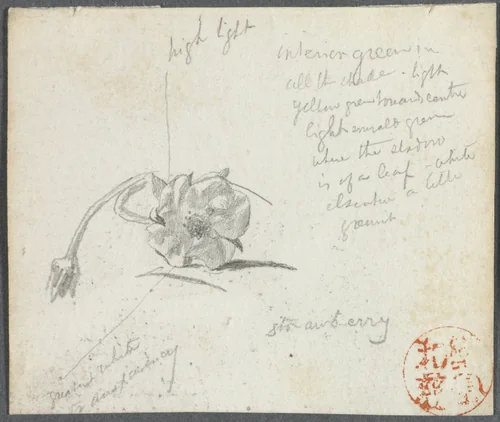 high light
interior green in
all the shade - light
yellow green towards centre
light emerald green
where the shadow
is of a leaf - white
elsewhere a little
greenish
strawberry
white
transparency